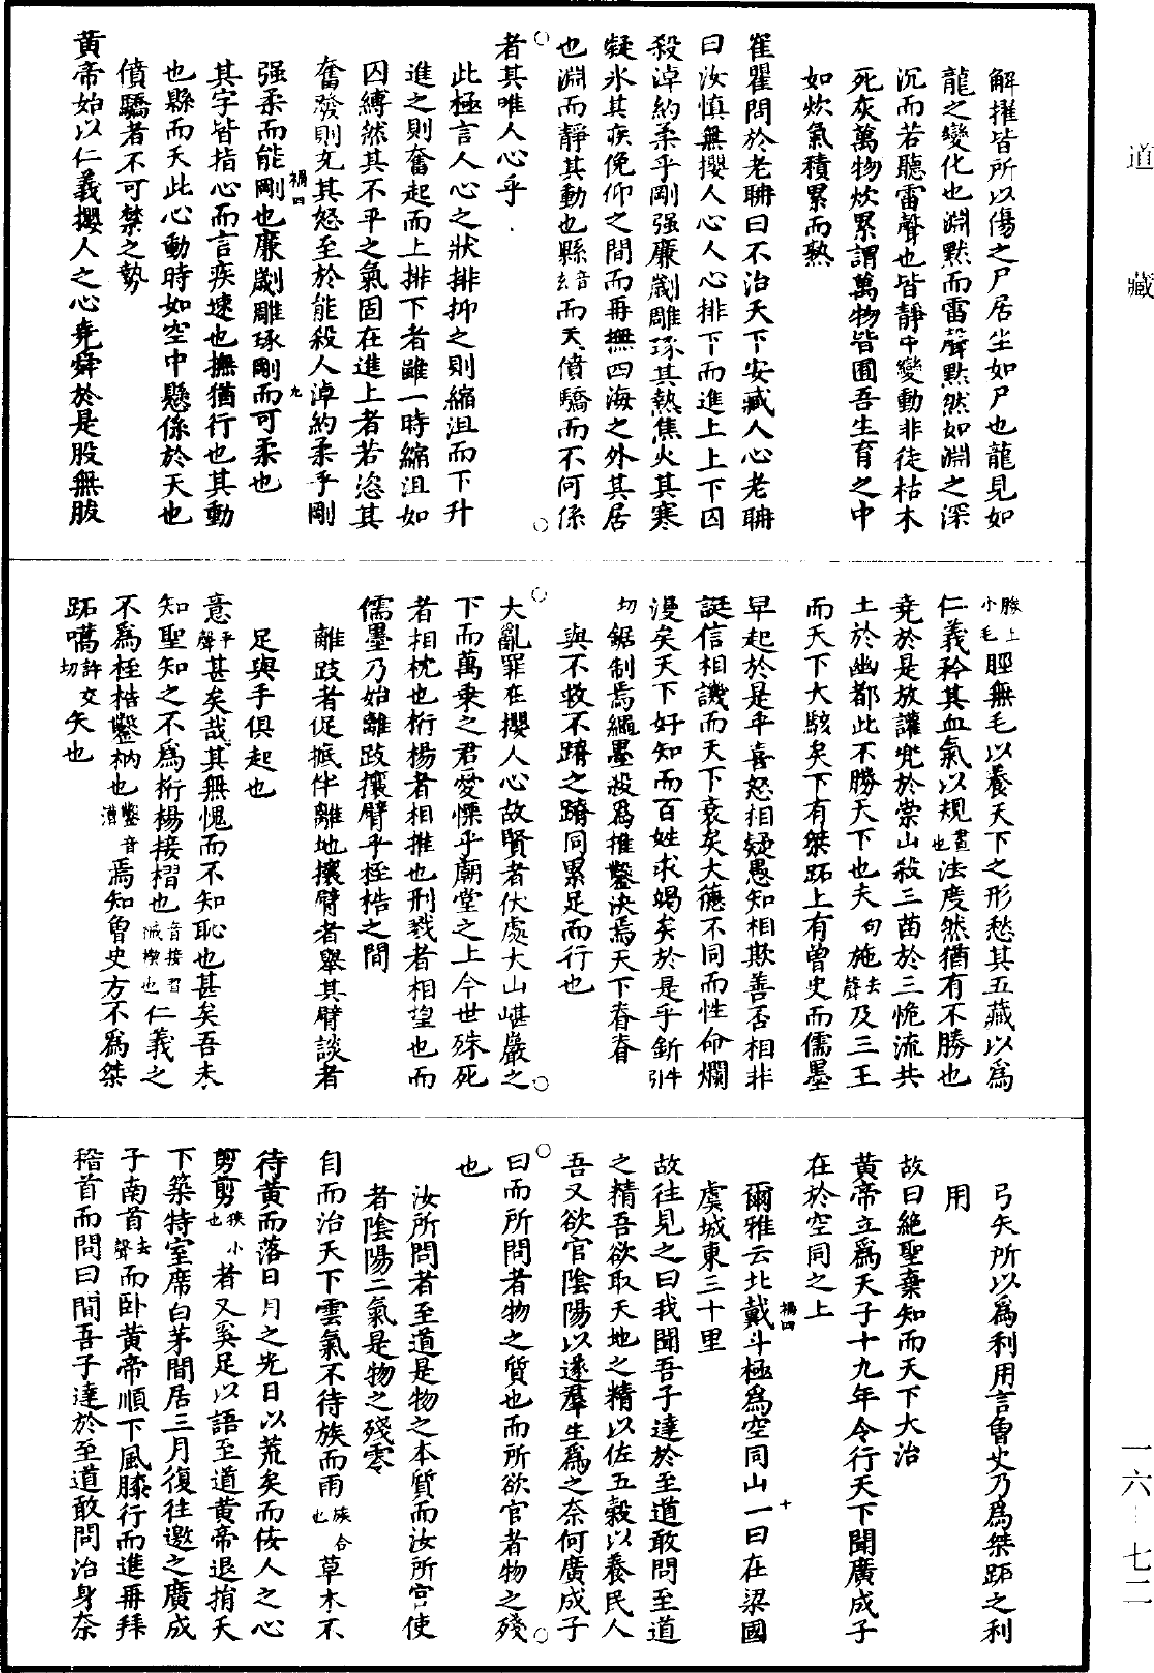 道藏
解擢皆所以傷之尸居坐如尸也龍見如
龍之變化也淵黙而雷聲黙然如淵之深
沉而若聽雷聲也皆静中變動非徒枯木
死灰萬物炊累謂萬物皆囿吾生育之中
如炊氣積累而熟
崔瞿問於老聃曰不治天下安臧人心老聃
曰汝慎無攖人心人心排下而進上上下囚
殺淖約柔乎剛强廉劌雕琢其熱焦火其寒
凝氷其疾俛仰之間而再撫四海之外其居
也淵而靜其動也縣音玄而天僨驕而不可係
者其唯人心乎
此極言人心之狀排抑之則縮沮而下升
進之則奮起而上排下者雖一時縮沮如
囚縛然其不平之氣固在進上者若恣其
奮發則充其怒至於能殺人淖約柔乎剛
强柔而能剛也廉劌雕琢剛而可柔也
禍四
九
其字皆指心而言疾速也撫猶行也其動
也縣而天此心動時如空中懸係於天也
僨驕者不可禁之勢
黄帝始以仁義攖人之心堯舜於是股無胈
腠上小毛脛無毛以養天下之形愁其五藏以爲
仁義矜其血氣以規畫也法度然猶有不勝也
堯於是放讙兜於崇山殺三苗於三危流共
土於幽都此不勝天下也夫句施去聲及三王
而天下大駭矣下有桀跖上有曾史而儒墨
早起於是乎喜怒相疑愚知相欺善否相非
誕信相譏而天下衰矣大德不同而性命爛
漫矣天下好知而百姓求竭矣於是乎釿斤引
切鋸制焉繩墨殺焉推鑿決焉天下脊脊
與不救不蹐之蹐同累足而行也
大亂罪在攖人心故賢者伏處大山嵁巖之
下而萬乘之君憂慄乎廟堂之上今世殊死
者相枕也桁楊者相推也刑戮者相望也而
儒墨乃始離跂攘臂乎桎梏之間
離跂者足摭伴離地攘臂者舉其臂談者
足與手俱起也
意平聲甚矣哉其無愧而不知恥也甚矣吾未
知聖知之不爲桁楊接槢也音接習㨨楔也仁義之
不爲桎梏鑿枘也鑿音漕焉知曾史方不爲桀
跖嚆許交切矢也
弓矢所以爲利用言曾史乃爲桀跖之利
用
故曰絶聖棄知而天下大治
黄帝立爲天子十九年令行天下聞廣成子
在於空同之上
爾雅云北戴斗極爲空同山一曰在梁國
禍四
十
虞城東三十里
故往見之曰我聞吾子達於至道敢問至道
之精吾欲取天地之精以佐五穀以養民人
吾又欲官陰陽以遂羣生爲之奈何廣成子
曰而所問者物之質也而所欲官者物之殘
也
汝所問者至道是物之本質而汝所官使
者陰陽二氣是物之殘零
自而治天下雲氣不待族而雨族合也草木不
待黄而落日月之光日以荒矣而佞人之心
剪剪狹小也者又奚足以語至道黄帝退捐天
下築特室席白茅間居三月復往邀之廣成
子南首去聲而卧黄帝順下風膝行而進再拜
稽首而問曰間吾子達於至道敢問治身奈
一六－七二